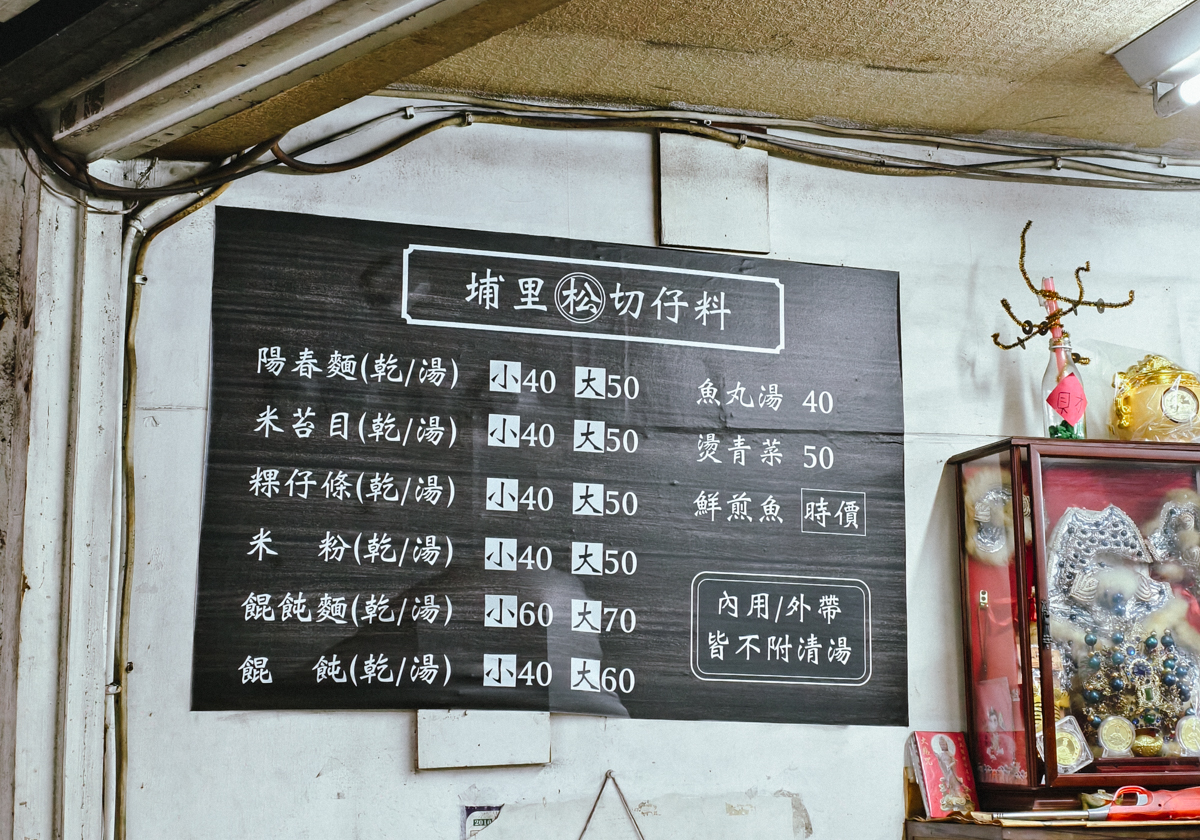 埔里松切仔料
陽春麵(乾/湯) 小40 大50
米苔目(乾/湯) 小40 大50
粿仔條(乾/湯) 小40 大50
米 粉(乾/湯) 小40 大50
餛飩麵(乾/湯) 小60 大70
餛 飩(乾/湯) 小40 大60
魚丸湯 40
燙青菜 50
鮮煎魚 時價
內用/外帶
皆不附清湯